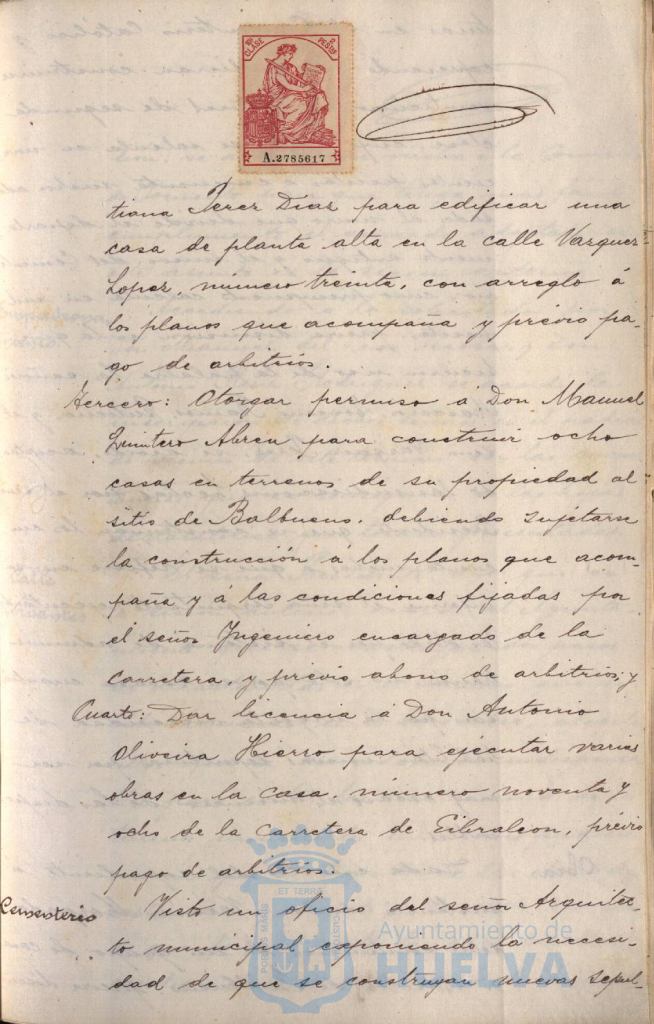 10ª CLASE
2 PESTAS
A.2785617
tiana Perez Diaz para edificar una
casa de planta alta en la calle Vazquez
Lopez, número treinta, con arreglo á
los planos que acompaña y prévio pa-
go de arbitrios.
Tercero: Otorgar permiso á Don Manuel
Quintero Abreu para construir ocho
casas en terrenos de su propiedad al
sitio de Balbueno, debiendo sujetarse
la construcción á los planos que acom-
paña y á las condiciones fijadas por
el señor Ingeniero encargado de la
carretera, y prévio abono de arbitrios; y
Cuarto: Dar licencia á Don Antonio
Oliveira Hierro para ejecutar varias
obras en la casa, número noventa y
ocho de la carretera de Gibraleon, prévio
pago de arbitrios.
Cementerio
Visto un oficio del señor Arquitec-
to municipal exponiendo la necesi-
dad de que se construyan nuevas sepul-
PORTUS MARIS ET TERRE CUSTODIA
Ayuntamiento de
HUELVA